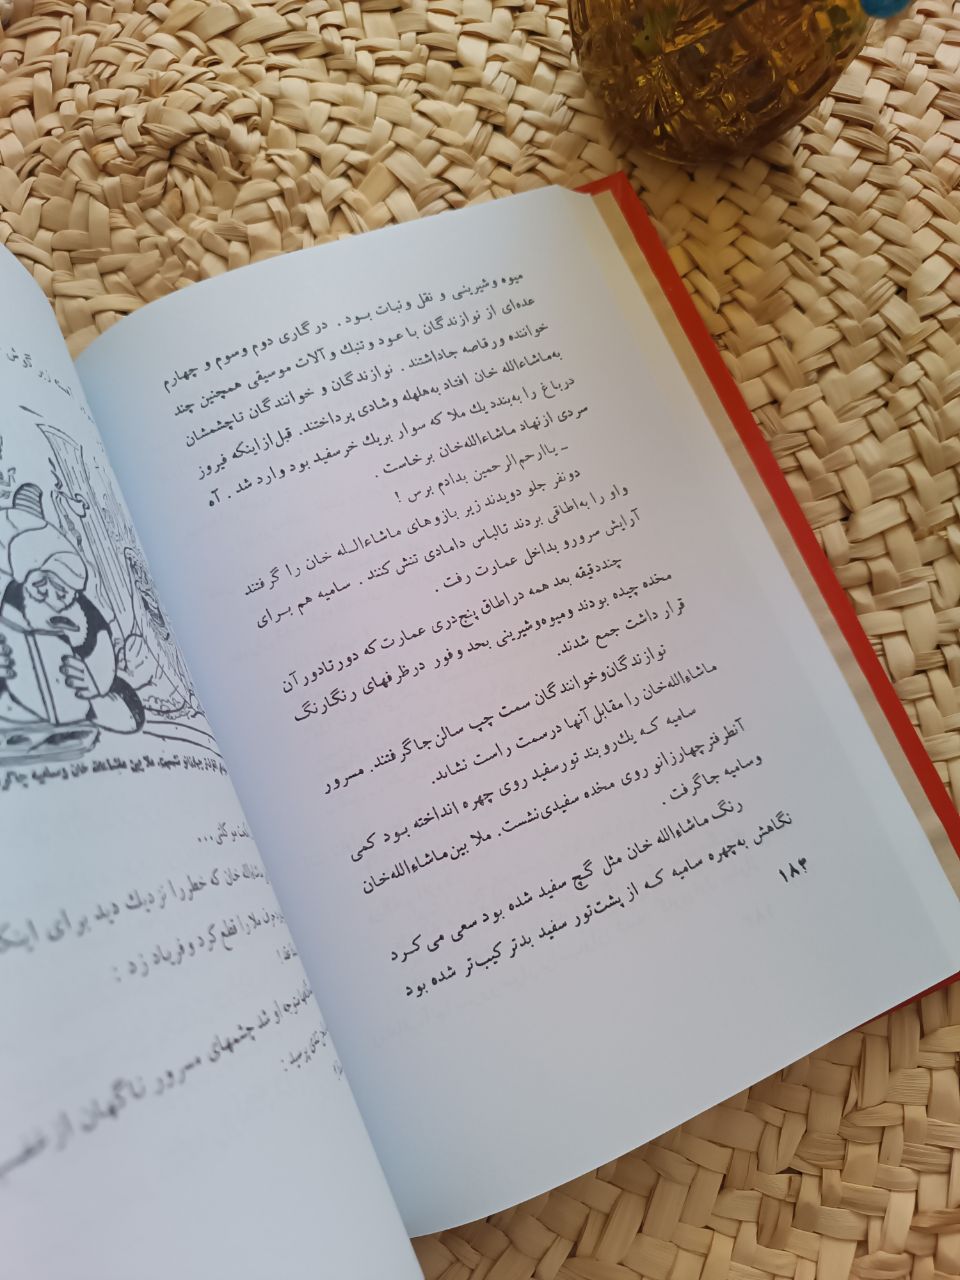 میوه وشیرینی و نقل ونبات بود . درگاری دوم وسوم و چهارم
عده‌ای از نوازندگان با عود وتنبك وآلات موسیقی همچنین چند
خواننده ورقاصه جاداشتند . نوازندگان و خوانندگان تاچشمشان
به‌ماشاءالله خان افتاد به‌هلهله وشادی پرداختند. قبل‌ازاینکه فیروز
درباغ را به‌بندد یك ملا که سوار بریك خر سفید بود وارد شد . آه
سردی ازنهاد ماشاءالله‌خان برخاست .
ـ یاارحم‌الرحمین بدادم برس !
دونفر جلو دویدند زیر بازوهای ماشاءالله خان را گرفتند
واو را به‌اطاقی بردند تالباس دامادی تنش کنند . سامیه هم برای
آرایش سرورو بداخل عمارت رفت .
چنددقیقه بعد همه دراطاق پنج‌دری عمارت که دورتادور آن
مخده چیده بودند ومیوه‌وشیرینی بحد وفور درظرفهای رنگارنگ
قرار داشت جمع شدند.
نوازندگان‌وخوانندگان سمت چپ سالن‌جاگرفتند. مسرور
ماشاءالله‌خان را مقابل آنها درسمت راست نشاند.
سامیه که یك‌رو بند تورسفید روی چهره انداخته بود کمی
آنطرفترچهارزانو روی مخده سفیدی‌نشست. ملا بین‌ماشاءالله‌خان
وسامیه جاگرفت .
رنگ ماشاءالله خان مثل گچ سفید شده بود سعی می کرد
نگاهش به‌چهره سامیه که از پشت‌تور سفید بدتر کیب‌تر شده بود
۱۸۳
ملا بین ماشاءالله خان وسامیه جاگر
خان که خطررا نزدیك دید برای اینک
ملا را قطع کرد وفریاد زد :
متوجه او شد چشمهای مسرور ناگهان از غضب
پرسید :